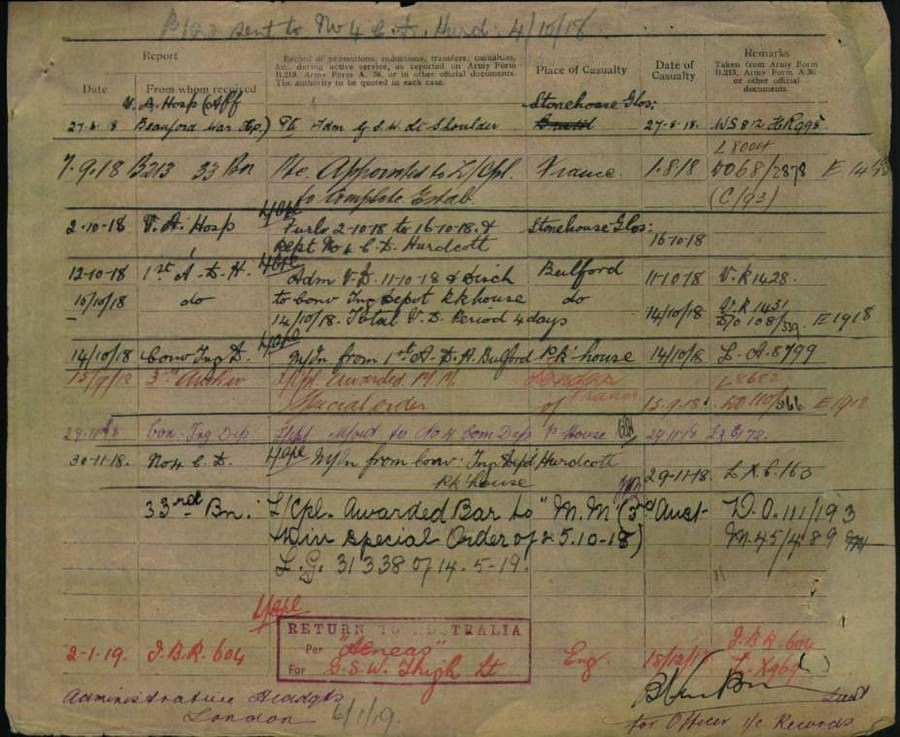 sent to No 4 C. D. Hurd: 4/10/18
Report
Record of promotions, reductions, transfers, casualties,
&c., during active service, as reported on Army Form
B.213, Army Form A. 36, or in other official documents.
The authority to be quoted in each case.
Place of Casualty
Date of
Casualty
Remarks
Taken from Army Form
B.213, Army Form A.36
or other official
documents.
Date
From whom received
V. A. Hosp (Aff Stonehouse Glos:
27-8-18 Beauford War Hsp.) Pte Adm G.S.W. Lt Shoulder 27-8-18. WS 812
7.9.18 B213 33 Bn Pte. Appointed to L/Cpl. France. 1.8/8 DO68/2878
to Complete Estab. (C/93)
2-10-18 V.A. Hosp L/Cpl Furlo 2-10-18 to 16-10-18. & Stonehouse Glos:
rept No 4 C. D. Hurdcott 16-10-18
12-10-18 1st A. D. H. L/Cpl Adm V.D. 11-10-18 & Disch Bulford 11-10-18 V.R 1428.
15/10/18 do to Conv Tng Depot Pk house do 14/10/18 V.R 1431
14/10/18. Total V.D. Period 4 days DO 108/ E1918
14/10/18 Conv Tng D. L/Cpl M/In from 1st A. D. H. Bulford Pk house 14/10/18 L. A.8799
L/Cpl Awarded M.M.
Special order of France 15.9.18. DO 110/366
29.11.18 Con. Tng Dep L/Cpl M/out to No 4 Com Dep P House 29.11.18
30-11-18. No 4 C. D. L/Cpl M/In from Conv: Tng Dep'd Hurdcott
Pk house 29-11-18. L X.6.163
33rd Bn. L/Cpl. Awarded Bar to "M.M" (3rd Aust- D.O. 111/193
Div Special Order of 25.10-18) M.45/489
L.G. 31338 of 14.5-19.
L/Cpl
RETURN TO AUSTRALIA
2-1-19. J.B.R. 604 Per "Aeneas" Eng. 18/12/1 J.B.R. 604
For G.S.W. Thigh Lt
Lieut
Administrative Headqts
London 6/1/19. for Officer i/c Records